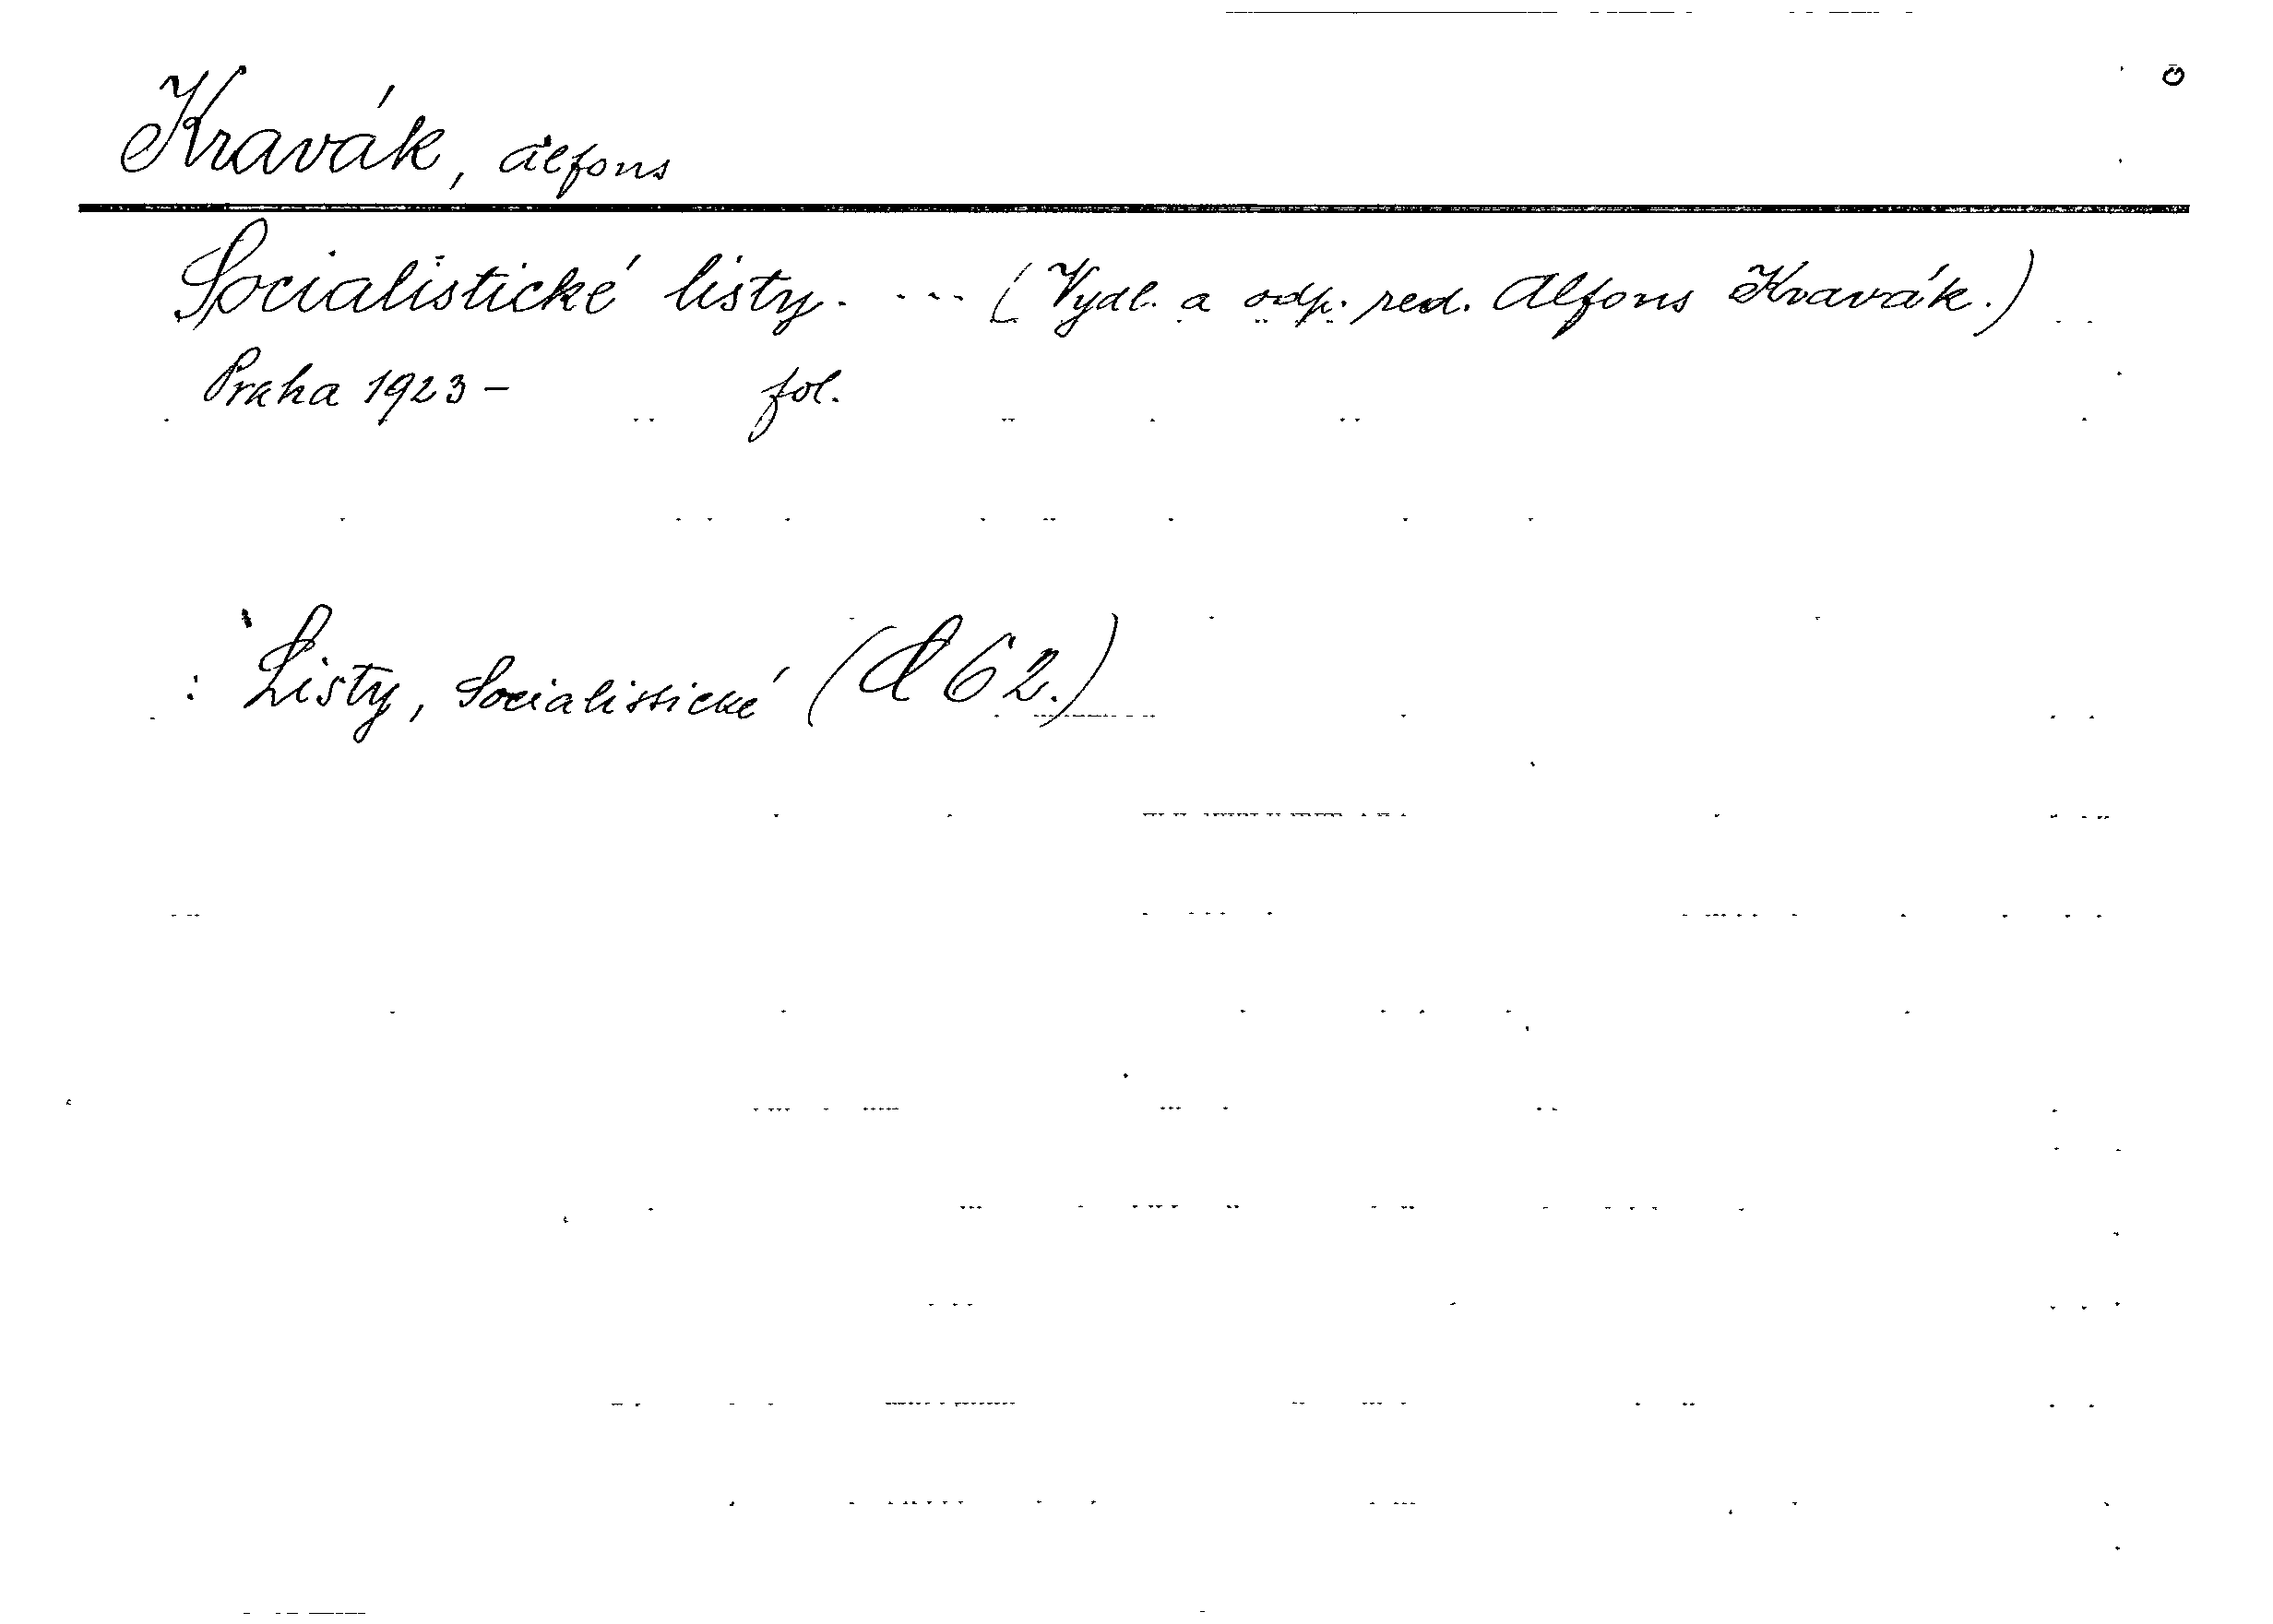 Kravák, Alfons
Socialistické listy. ... (Vydl. a odp. red. Alfons Kravák.)
Praha 1923 – fol.
: Listy, Socialistické (d 62.)